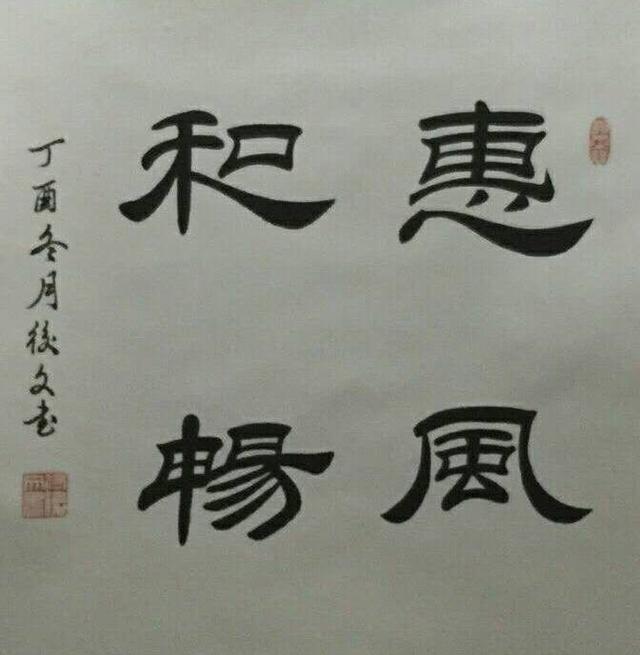 惠風
和暢
丁酉冬月後文书